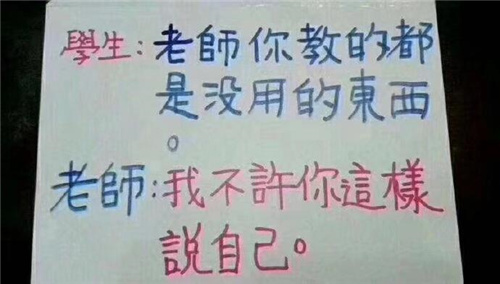 學生：老師你教的都
是没用的東西
。
老師：我不許你這樣
說自己。